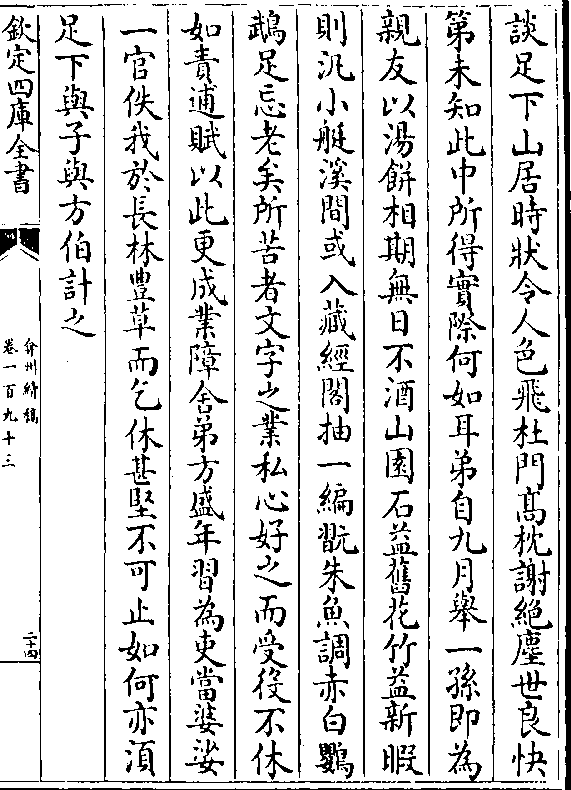 談足下山居時狀令人色飛杜門髙枕謝絶塵世良快
第未知此中所得實際何如耳弟自九月舉一孫即為
親友以湯餅相期無日不酒山園石益舊花竹益新暇
則汎小艇溪間或入藏經閣抽一編翫朱魚調赤白鸚
鵡足忘老矣所苦者文字之業私心好之而受役不休
如責逋賦以此更成業障舍弟方盛年習為吏當婆娑
一官佚我於長林豐草而乞休甚堅不可止如何亦湏
足下與子與方伯計之
欽定四庫全書
弇州續稿
卷一百九十三
二十四